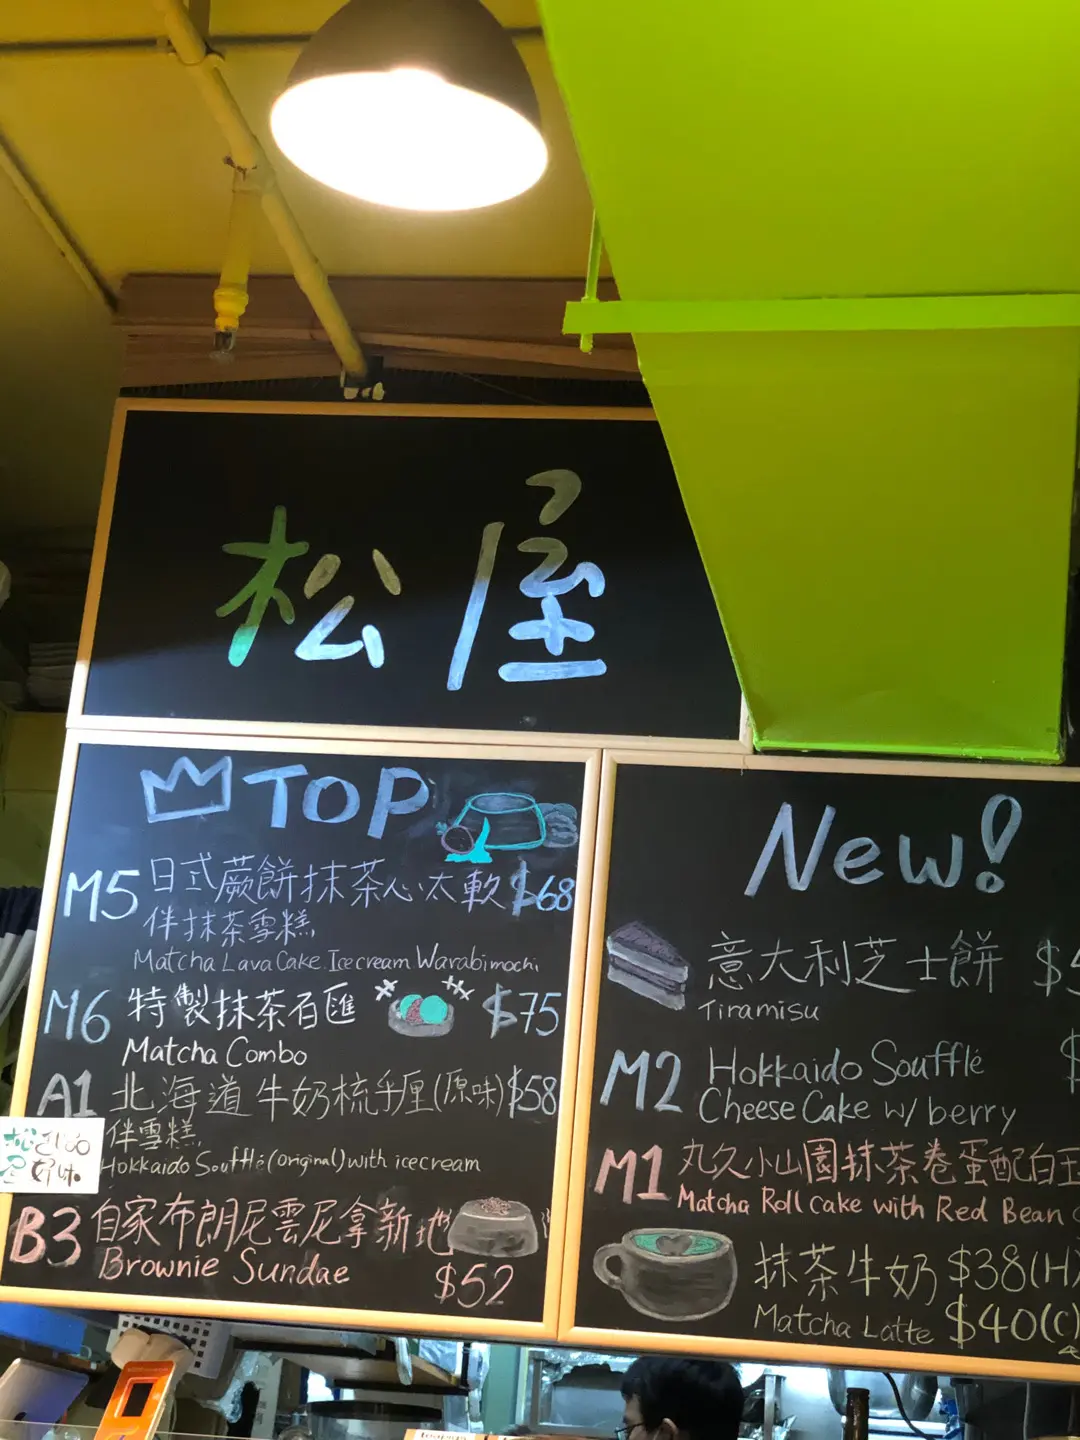 松屋
TOP
M5 日式蕨餅抹茶心太軟 $68
伴抹茶雪糕
Matcha Lava Cake. Icecream Warabimochi
M6 特製抹茶百匯 $75
Matcha Combo
A1 北海道牛奶梳乎厘(原味) $58
伴雪糕
Hokkaido Soufflé (original) with icecream
B3 自家布朗尼雲尼拿新地
Brownie Sundae $52
松屋
好味
New!
意大利芝士餅
Tiramisu
M2 Hokkaido Soufflé
Cheese Cake w/ berry
M1 丸久小山園抹茶卷蛋配白玉
Matcha Roll cake with Red Bean
抹茶牛奶 $38(H)
Matcha Latte $40(C)